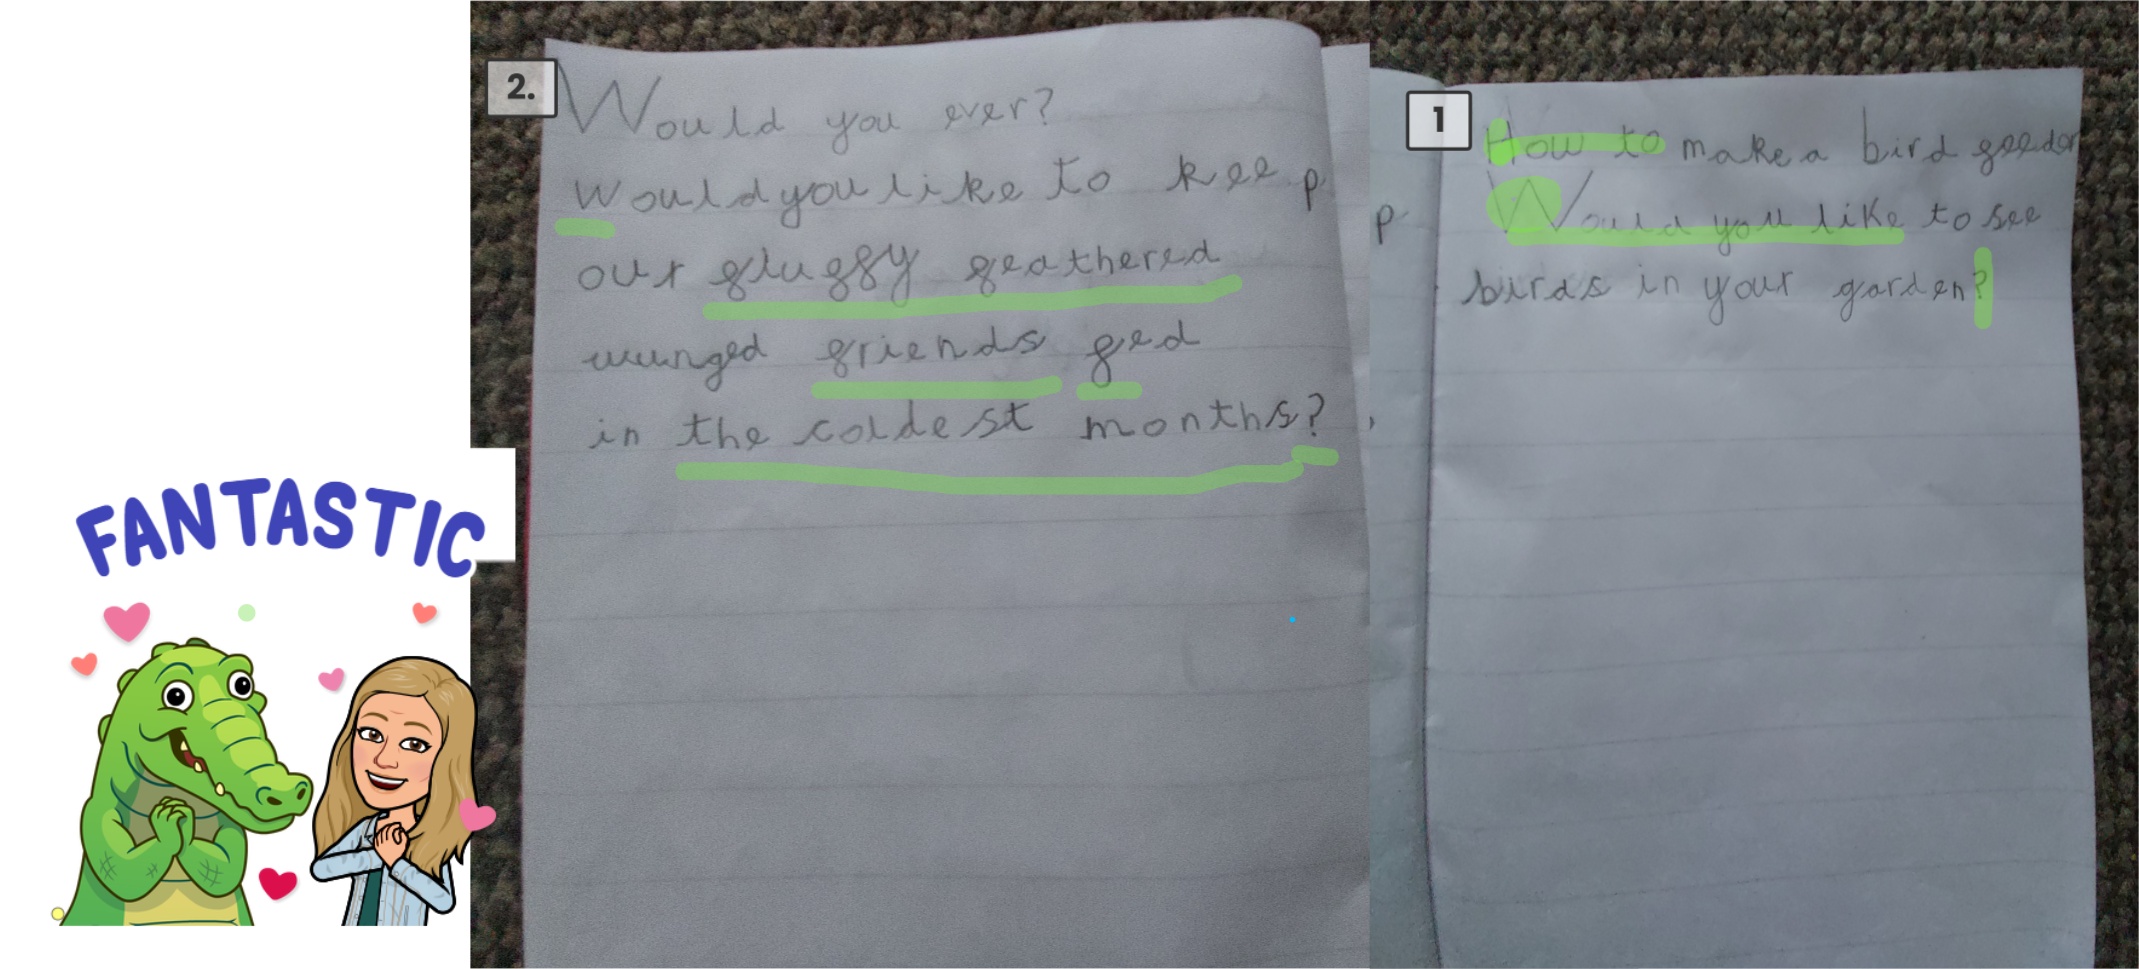 FANTASTIC
1
How to make a bird feeder
Would you like to see
birds in your garden?
2.
Would you ever?
Would you like to keep
our fluffy feathered
winged friends fed
in the coldest months?